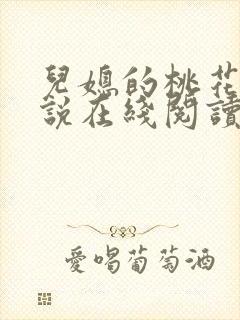 兒媳的桃花
說在綫閱讀
愛喝葡萄酒